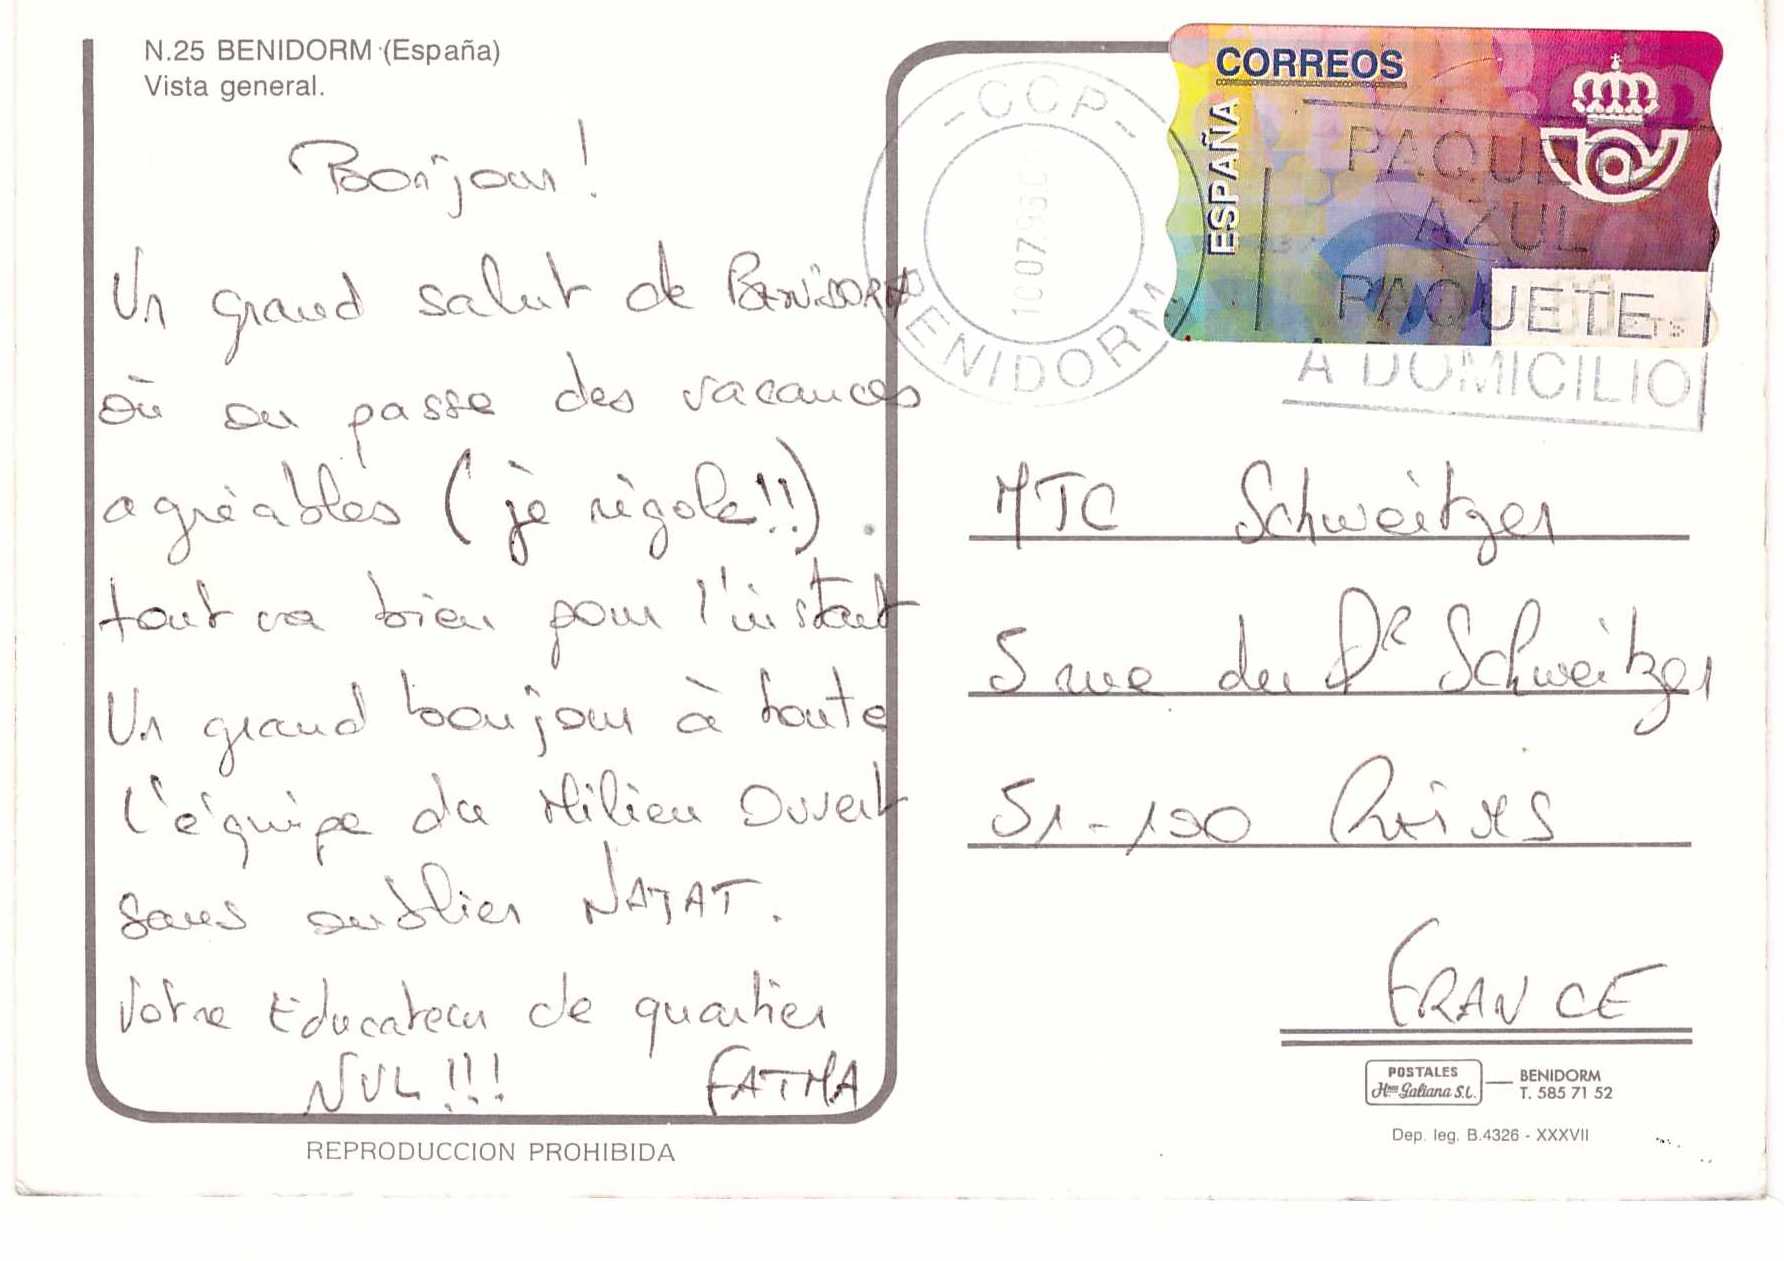 N.25 BENIDORM (España)
Vista general.
Bonjour !
Un grand salut de BENIDORM
où on passe des vacances
agréables (je rigole!!).
tout va bien pour l'instant
Un grand bonjour à toute
l'équipe du Milieu Ouvert
sans oublier NAJAT.
Votre Educateur de quartier
NUL !!!
FATMA
REPRODUCCION PROHIBIDA
-CCP-
BENIDORM
CORREOS
ESPAÑA
PAQUETE
AZUL
PAQUETE
A DOMICILIO
MJC Schweitzer
5 rue du DR Schweitzer
51-100 REIMS
FRANCE
POSTALES
Hnos Galiana S.L.
BENIDORM
T. 585 71 52
Dep. leg. B.4326 - XXXVII